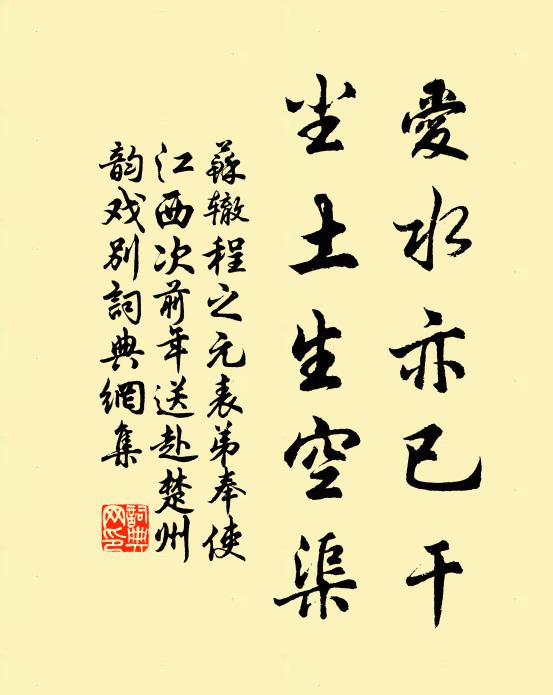 愛水亦已干
尘土生空渠
蘇辙程之元表弟奉使
江西次前年送赴楚州
韵戏别詞典網集
詞典
网印